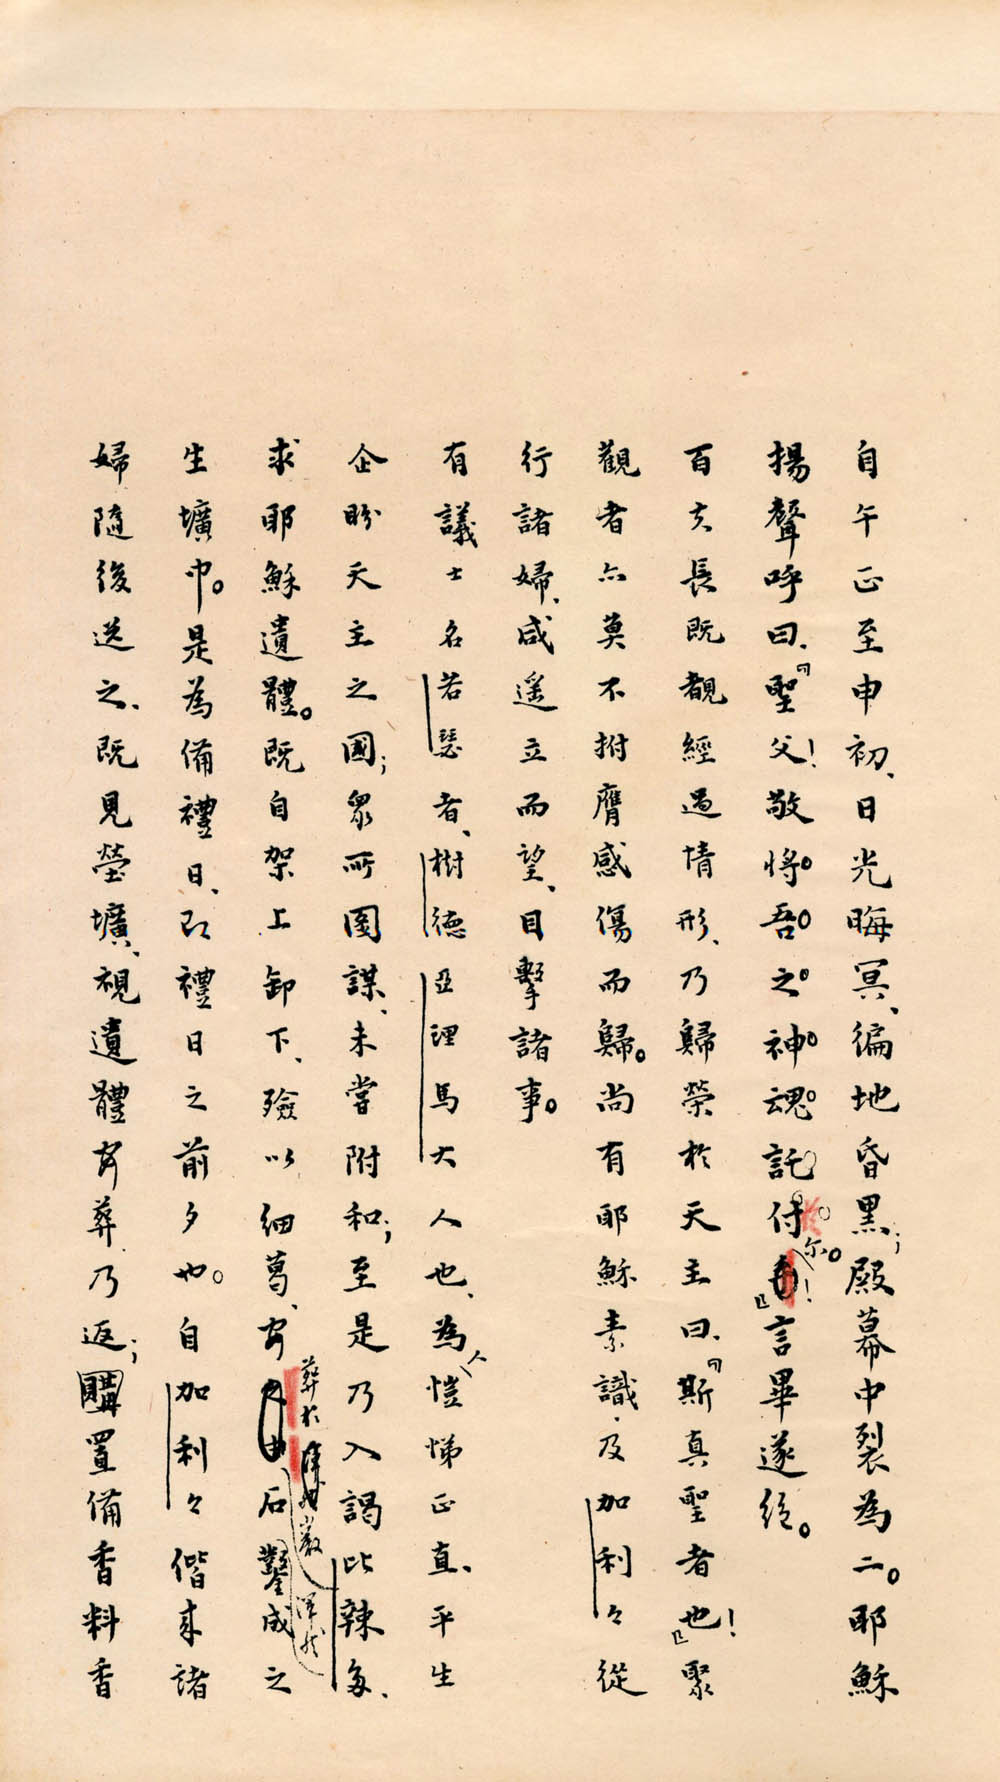 自午正至申初、日光晦冥、徧地昏黑；殿幕中裂為二。耶穌
揚聲呼曰、「聖父！敬將吾之神魂託付尔！」言畢遂絕。
百夫長既覩經過情形、乃歸榮於天主曰、「斯真聖者也！」聚
觀者亦莫不拊膺感傷而歸。尚有耶穌素識、及加利々從
行諸婦、咸遙立而望、目擊諸事。
有議士名若瑟者、樹德亞理馬大人也、為人愷悌正直、平生
企盼天主之國；眾所圖謀、未嘗附和；至是乃入謁比辣多、
求耶穌遺體。既自架上卸下、殮以細葛、安葬於巖石鑿成之
生壙中。是為備禮日、即禮日之前夕也。自加利々偕來諸
婦隨後送之、既見塋壙、視遺體安葬乃返；購置備香料香